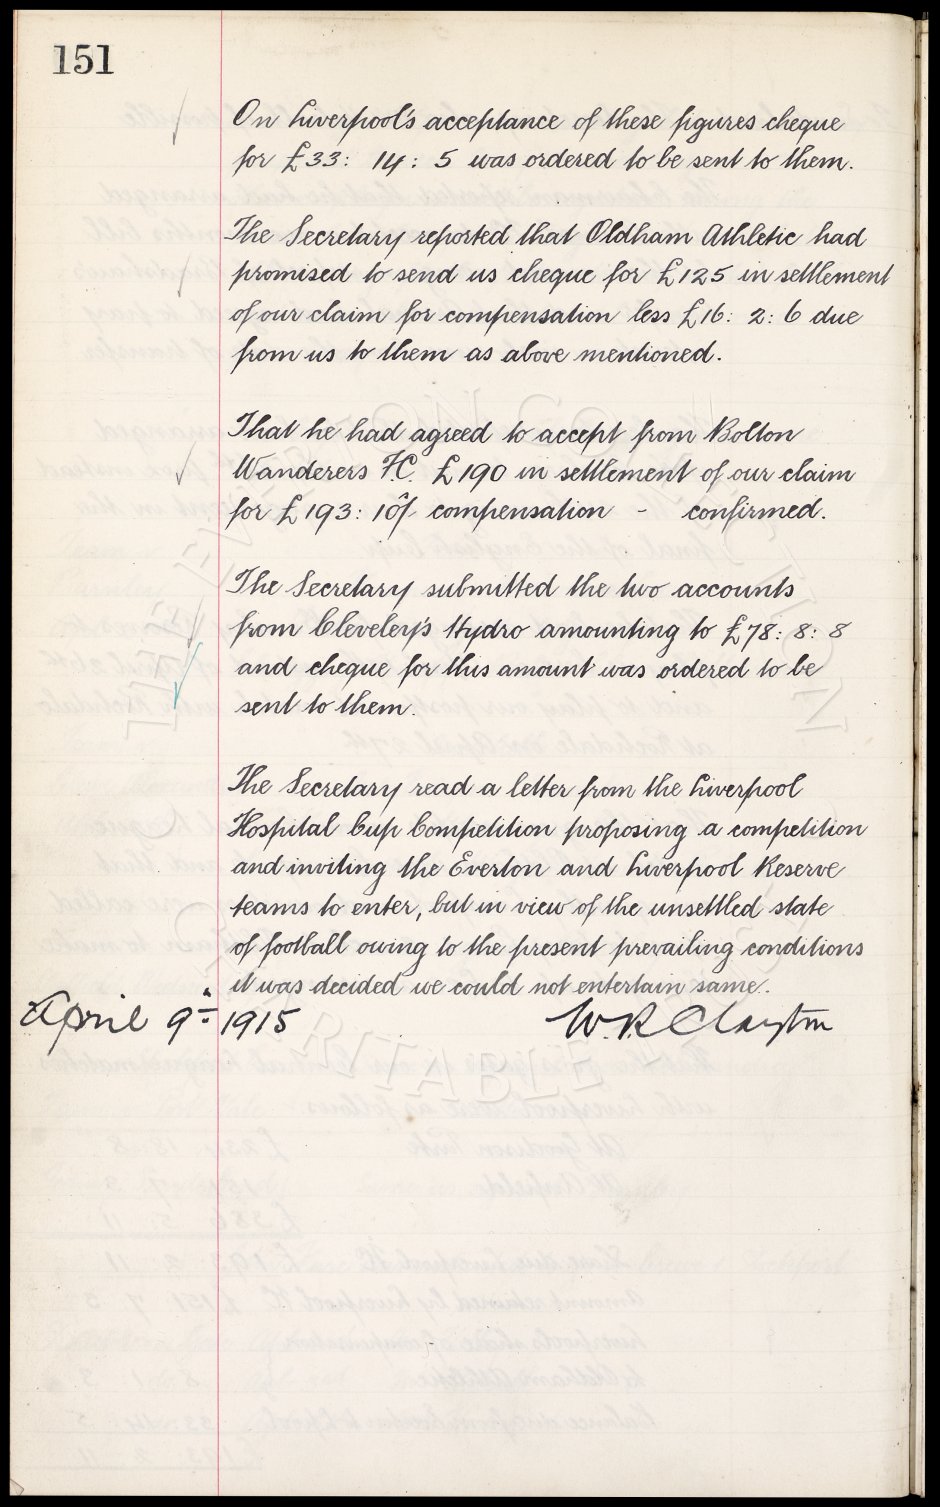 151
On Liverpool's acceptance of these figures cheque
for £33: 14: 5 was ordered to be sent to them.
The Secretary reported that Oldham Athletic had
promised to send us cheque for £125 in settlement
of our claim for compensation less £16: 2: 6 due
from us to them as above mentioned.
That he had agreed to accept from Bolton
Wanderers FC. £190 in settlement of our claim
for £193: 10/- compensation - confirmed.
The Secretary submitted the two accounts
from Cleveley's Hydro amounting to £78: 8: 8
and cheque for this amount was ordered to be
sent to them.
The Secretary read a letter from the Liverpool
Hospital Cup Competition proposing a competition
and inviting the Everton and Liverpool Reserve
teams to enter, but in view of the unsettled state
of football owing to the present prevailing conditions
it was decided we could not entertain same.
April 9th 1915 W. R Clayton